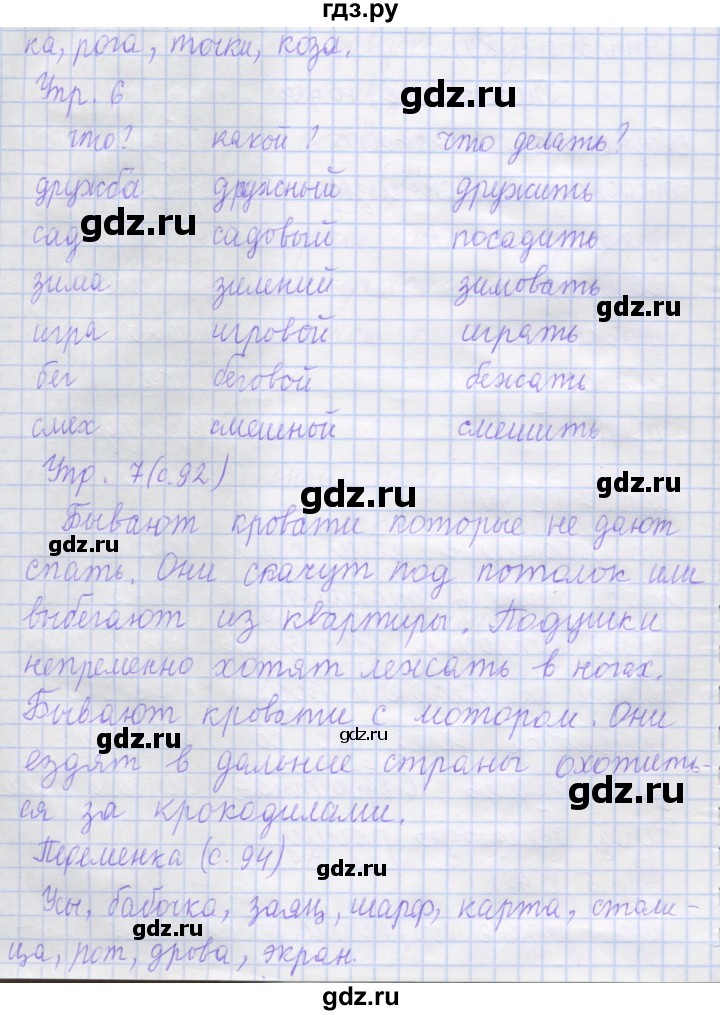 гдз.ру
ка, рога, точки, коза.
Упр. 6
gdz.ru
что? какой? что делать?
дружба дружный дружить
gdz.ru
сад садовый посадить
зима зимний зимовать
gdz.ru
игра игровой играть
бег беговой бежать
смех смешной смешить
Упр. 7 (с. 92)
gdz.ru
gdz.ru
Бывают кровати которые не дают
gdz.ru
спать. Они скачут под потолок или
выбегают из квартиры. Подушки
непременно хотят лежать в ногах.
Бывают кровати с мотором. Они
gdz.ru
gdz.ru
ездят в дальние страны охотить-
gdz.ru
ся за крокодилами.
Переменка (с. 94)
gdz.ru
Усы, бабочка, заяц, шарф, карта, столи-
gdz.ru
ца, рот, дрова, экран.
gdz.ru
gdz.ru